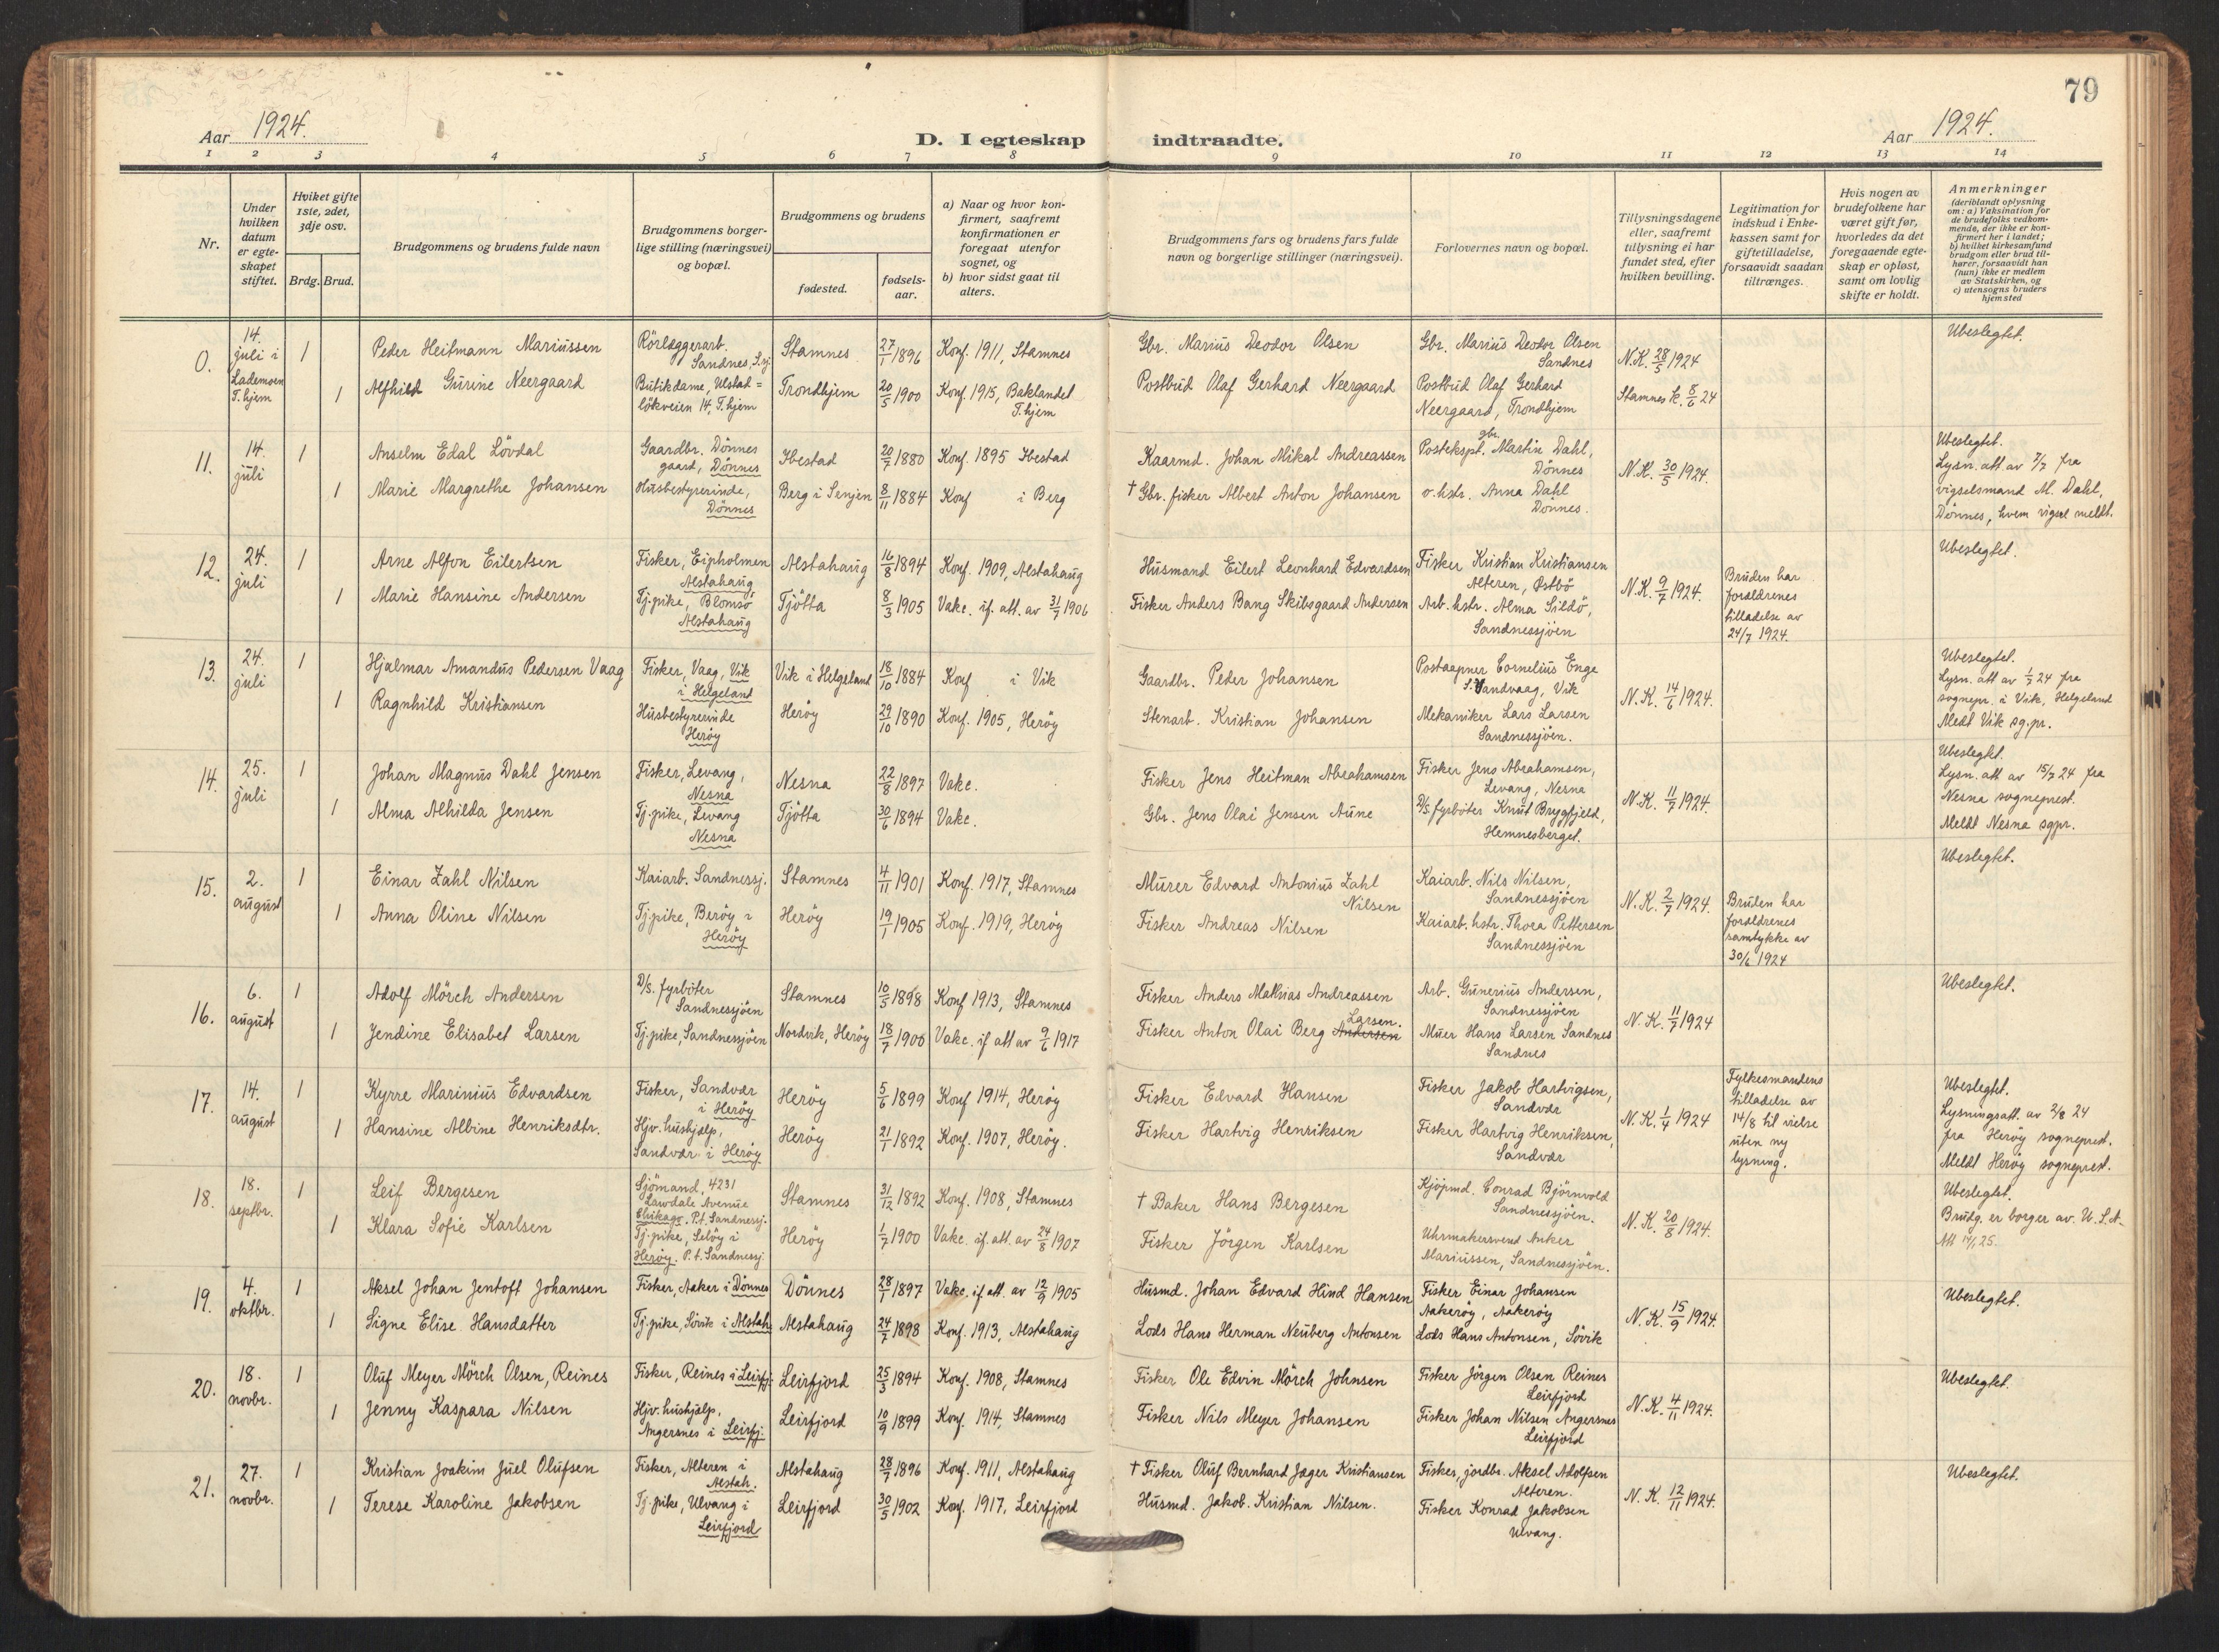 79
Aar 1924.
D. I egteskap indtraadte.
Aar 1924.
1 2 3 4 5 6 7 8 9 10 11 12 13 14
Nr.
Under hvilken datum er egteskapet stiftet.
Hvilket gifte 1ste, 2det, 3dje osv.
Brdg. Brud.
Brudgommens og brudens fulde navn
Brudgommens borgerlige stilling (næringsvei) og bopæl.
Brudgommens og brudens
fødested.
fødselsaar.
a) Naar og hvor konfirmert, saafremt konfirmationen er foregaat utenfor sognet, og
b) hvor sidst gaat til alters.
Brudgommens fars og brudens fars fulde navn og borgerlige stillinger (næringsvei).
Forlovernes navn og bopæl.
Tillysningsdagene eller, saafremt tillysning ei har fundet sted, efter hvilken bevilling.
Legitimation for indskud i Enkekassen samt for giftetilladelse, forsaavidt saadan tiltrænges.
Hvis nogen av brudefolkene har været gift før, hvorledes da det foregaaende egteskap er opløst, samt om lovlig skifte er holdt.
Anmerkninger (deriblandt oplysning om: a) Vaksination for de brudefolks vedkommende, der ikke er konfirmert her i landet; b) hvilket kirkesamfund brudgom eller brud tilhører, forsaavidt han (hun) ikke er medlem av Statskirken, og c) utensogns bruders hjemsted
0. 14. juli i Lademoen T.hjem
1 Peder Heitmann Mariussen Rörlæggerarb. Sandnes, Ssj Stamnes 27/1 1896 Konf. 1911, Stamnes Gbr. Marius Deodor Olsen Gbr. Marius Deodor Olsen Sandnes N.K. 28/5 1924 Ubeslegtet.
1 Alfhild Gurine Neergaard Butikdame, Ulstadlökveien 14, T.hjem Trondhjem 20/5 1900 Konf. 1915, Baklandet T.hjem Postbud Olaf Gerhard Neergaard Postbud Olaf Gerhard Neergaard, Trondhjem Stamnes k. 8/6 24
11. 14. juli
1 Anselm Edal Lövdal Gaardbr. Dönnes gaard, Dönnes Ibestad 20/7 1880 Konf. 1895 Ibestad Kaarmd. Johan Mikal Andreassen Postekspt. gbr. Martin Dahl, Dönnes N.K. 30/5 1924. Ubeslegtet. Lysn. att. av 7/7 fra vigselsmand M. Dahl, Dönnes, hvem vigsel meldt.
1 Marie Margrethe Johansen Husbestyrerinde, Dönnes Berg i Senjen 8/11 1884 Konf i Berg † Gbr. fisker Albert Anton Johansen o. hstr. Anna Dahl Dönnes.
12. 24. juli
1 Arne Alfon Eilertsen Fisker, Eipholmen Alstahaug Alstahaug 16/8 1894 Konf. 1909, Alstahaug Husmand Eilert Leonhard Edvardsen Fisker Kristian Kristiansen Alteren, Østbö N.K. 9/7 1924. Bruden har forældrenes tilladelse av 24/7 1924. Ubeslegtet.
1 Marie Hansine Andersen Tj.pike, Blomsö Alstahaug Tjötta 8/3 1905 Vakc. if. att. av 31/7 1906 Fisker Anders Bang Skibsgaard Andersen Arb. hstr. Alma Sildö, Sandnessjöen
13. 24. juli
1 Hjalmar Amandus Pedersen Vaag Fisker, Vaag, Vik i Helgeland Vik i Helgeland 18/10 1884 Konf i Vik Gaardbr. Peder Johansen Postaapner Cornelius Enge S. Vandvaag, Vik N.K. 14/6 1924. Ubeslegtet. Lysn. att av 1/7 24 fra sognepr. i Vik, Helgeland Meldt Vik sg.pr.
1 Ragnhild Kristiansen Husbestyrerinde Heröy Heröy 29/10 1890 Konf. 1905, Heröy Stenarb. Kristian Johansen Mekaniker Lars Larsen Sandnessjöen.
14. 25. juli
1 Johan Magnus Dahl Jensen Fisker, Levang, Nesna Nesna 22/8 1897 Vakc. Fisker Jens Heitman Abrahamsen Fisker Jens Abrahamsen, Levang, Nesna N.K. 11/7 1924. Ubeslegtet. Lysn. att av 15/7 24 fra Nesna sogneprest. Meldt Nesna sgpr.
1 Alma Alhilda Jensen Tj.pike, Levang Nesna Tjötta 30/6 1894 Vakc. Gbr. Jens Olai Jensen Aune D/S. fyrböter Knut Brygfjeld, Hemnesberget.
15. 2. august
1 Einar Zahl Nilsen Kaiarb. Sandnessj. Stamnes 4/11 1901 Konf. 1917, Stamnes Murer Edvard Antonius Zahl Nilsen Kaiarb. Nils Nilsen, Sandnessjöen N.K. 2/7 1924. Bruden har forældrenes samtykke av 30/6 1924 Ubeslegtet.
1 Anna Oline Nilsen Tj.pike, Beröy i Heröy Heröy 19/1 1905 Konf. 1919, Heröy Fisker Andreas Nilsen Kaiarb. hstr. Thora Pettersen Sandnessjöen
16. 6. august
1 Adolf Mörch Andersen D/S. fyrböter Sandnessjöen Stamnes 10/5 1898 Konf 1913, Stamnes Fisker Anders Mathias Andreassen Arb. Gunerius Andersen, Sandnessjöen N.K. 11/7 1924 Ubeslegtet.
1 Jendine Elisabet Larsen Tj.pike, Sandnessjöen Nordvik, Heröy 18/7 1900 Vakc. if att av 9/6 1917 Fisker Anton Olai Berg Andersen Larsen. Murer Hans Larsen Sandnes Sandnes
17. 14. august
1 Kyrre Marinius Edvardsen Fisker, Sandvær i Heröy Heröy 5/6 1899 Konf 1914, Heröy Fisker Edvard Hansen Fisker Jakob Hartvigsen, Sandvær N.K. 1/4 1924 Fylkesmandens tilladelse av 14/8 til vielse uten ny lysning. Ubeslegtet. Lysningsatt. av 2/8 24 fra Heröy sogneprest. Meldt Heröy sogneprest.
1 Hansine Albine Henriksdtr. Hjv. hushjælp, Sandvær i Heröy Heröy 21/1 1892 Konf. 1907, Heröy. Fisker Hartvig Henriksen Fisker Hartvig Henriksen, Sandvær
18. 18. septbr.
1 Leif Bergesen Sjömand, 4231 Lawdale Avenue Chikago. P.t. Sandnessj. Stamnes 31/12 1892 Konf. 1908, Stamnes † Baker Hans Bergesen Kjöpmd. Conrad Björnvold Sandnessjöen. N.K. 20/8 1924. Ubeslegtet. Brudg. er borger av U.S.A. Att 17/1 25.
1 Klara Sofie Karlsen Tj.pike, Selöy i Heröy. P.t. Sandnessj. Heröy 1/7 1900 Vakc. if. att. av 24/8 1907 Fisker Jörgen Karlsen Uhrmakersvend Anker Mariussen, Sandnessjöen.
19. 4. oktbr.
1 Aksel Johan Jentoft Johansen Fisker, Aaker i Dönnes Dönnes 28/1 1897 Vakc. if. att. av 12/9 1905 Husmd. Johan Edvard Hind Hansen Fisker Einar Johansen Aakeröy, Aakeröy N.K. 15/9 1924. Ubeslegtet.
1 Signe Elise Hansdatter Tj.pike, Sövik i Alstah. Alstahaug 24/7 1898 Konf. 1913, Alstahaug Lods Hans Herman Neuberg Antonsen Lods Hans Antonsen, Sövik
20. 18. novbr.
1 Oluf Meyer Mörch Olsen, Reines Fisker, Reines i Leirfj. Leirfjord 25/3 1894 Konf. 1908, Stamnes Fisker Ole Edvin Mörch Johnsen Fisker Jörgen Olsen Reines Leirfjord N.K. 4/11 1924. Ubeslegtet.
1 Jenny Kaspara Nilsen Hjv. hushjælp, Angersnes i Leirfj. Leirfjord 10/9 1899 Konf. 1914, Stamnes Fisker Nils Meyer Johansen Fisker Johan Nilsen Angersnes Leirfjord
21. 27. novbr.
1 Kristian Joakim Juel Olufsen Fisker, Alteren i Alstah. Alstahaug 28/7 1896 Konf. 1911, Alstahaug † Fisker Oluf Bernhard Jæger Kristiansen Fisker, jordbr. Aksel Adolfsen Alteren. N.K. 12/11 1924. Ubeslegtet.
1 Terese Karoline Jakobsen Tj.pike, Ulvang i Leirfjord Leirfjord 30/5 1902 Konf. 1917, Leirfjord Husmd. Jakob Kristian Nilsen. Fisker Konrad Jakobsen Ulvang.